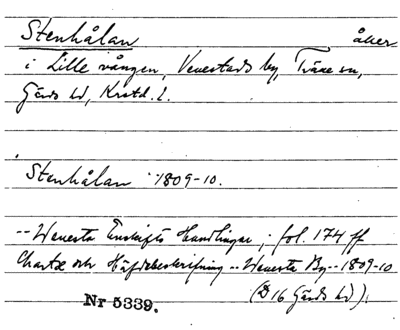 Stenhålan åker
i Lille vången, Venestads by, Träne sn,
Gärds hd, Krstd. l.
Stenhålan 1809-10.
-- Wenesta Enskifts Handlingar; fol. 174 ff
Charta och Häfdebeskrifning -- Wenesta By -- 1809-10
(D 16 Gärds hd).
Nr 5339.